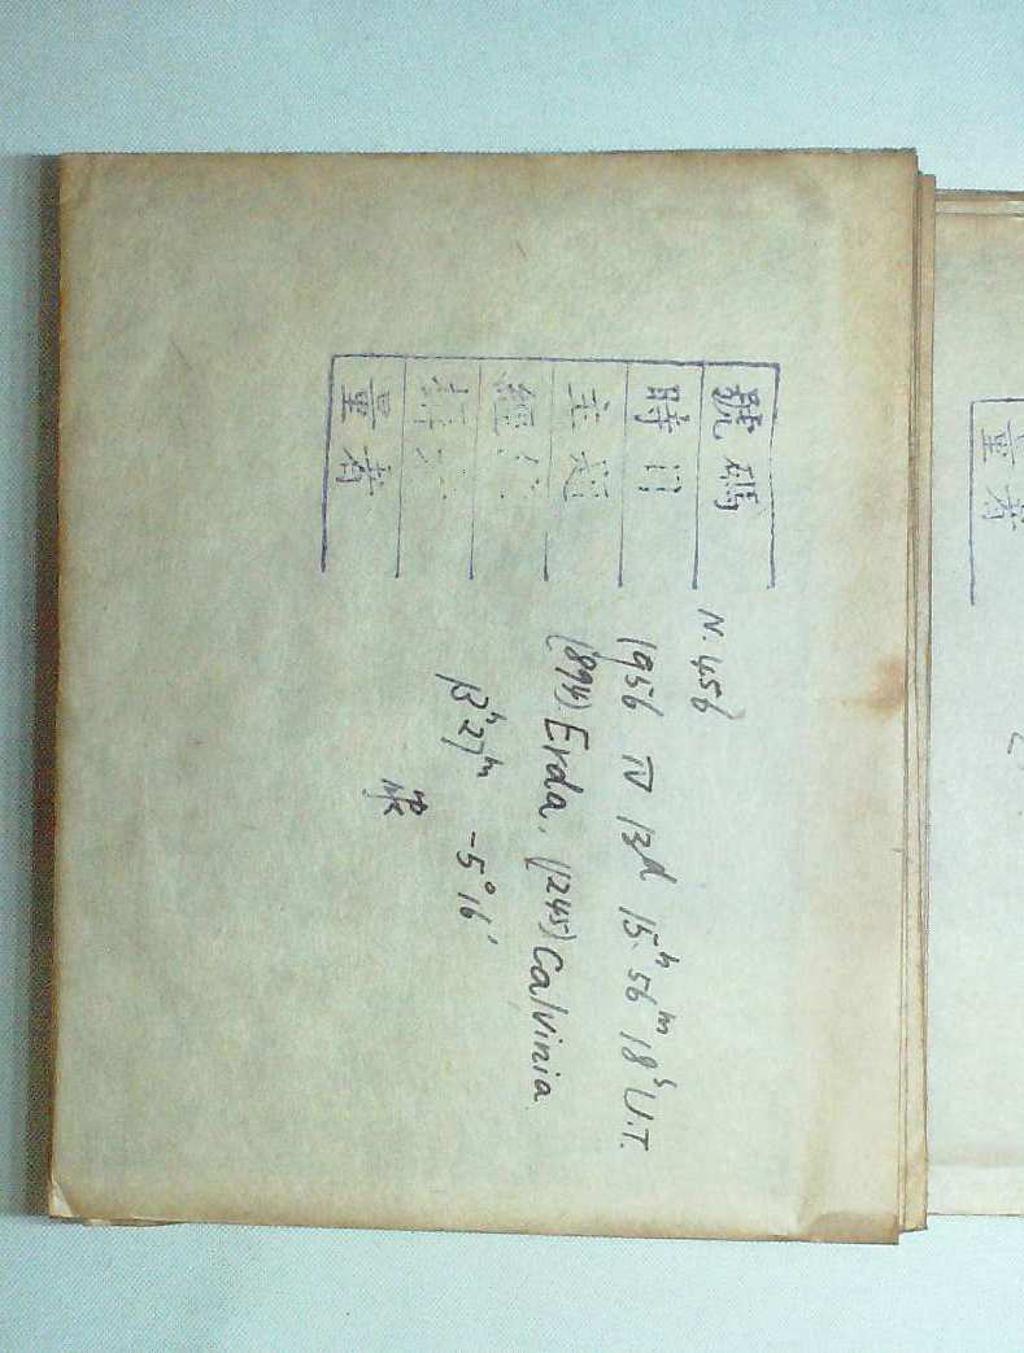 號碼 N. 456
時日 1956 IV 13d 15h 56m 18s U.T.
主題 (894) Erda, (1245) Calvinia
經 13h27m -5°16′
量者
量者